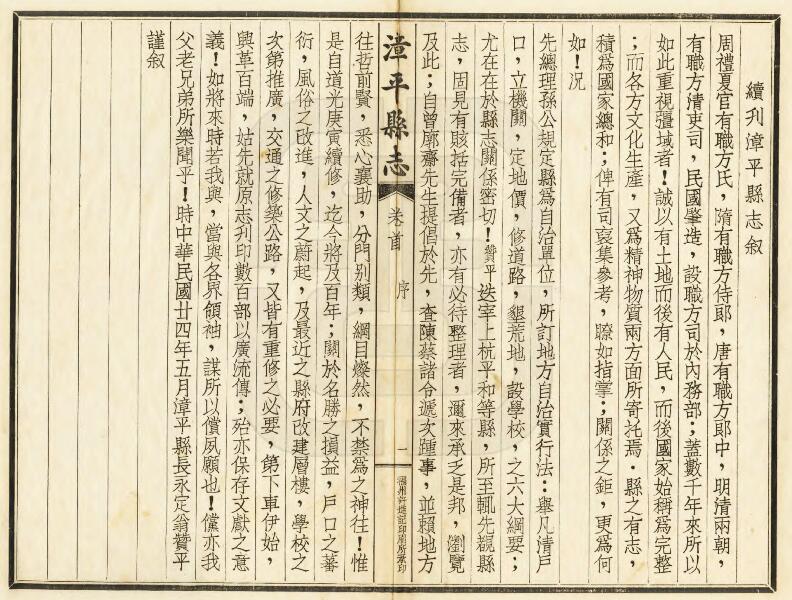 續刊漳平縣志叙
周禮夏官有職方氏，隋有職方侍郎，唐有職方郎中，明清兩朝，
有職方清吏司，民國肇造，設職方司於內務部；蓋數千年來所以
如此重視疆域者！誠以有土地而後有人民，而後國家始稱為完整
；而各方文化生產，又為精神物質兩方面所寄托焉。縣之有志，
積為國家總和；俾有司裒集參考，瞭如指掌；關係之鉅，更為何
如！況
先總理孫公規定縣為自治單位，所訂地方自治實行法：舉凡清戶
口，立機關，定地價，修道路，墾荒地，設學校，之六大綱要；
尤在在於縣志關係密切！贊平迭宰上杭平和等縣，所至輒先覯縣
志，固見有賅括完備者，亦有必待整理者，邇來承乏是邦，瀏覽
及此；自曾廓齋先生提倡於先，查陳蔡諸令遞次踵事，並賴地方
漳平縣志
卷首
序
一
福州許遠記印刷所承印
往哲前賢，悉心襄助，分門別類，綱目燦然，不禁為之神往！惟
是自道光庚寅續修，迄今將及百年；關於名勝之損益，戶口之蕃
衍，風俗之改進，人文之蔚起，及最近之縣府改建層樓，學校之
次第推廣，交通之修築公路，又皆有重修之必要，第下車伊始，
興革百端，姑先就原志刋印數百部以廣流傳；殆亦保存文獻之意
義！如將來時若我與，當與各界領袖，謀所以償夙願也！儻亦我
父老兄弟所樂聞乎！時中華民國廿四年五月漳平縣長永定翁贊平
謹叙